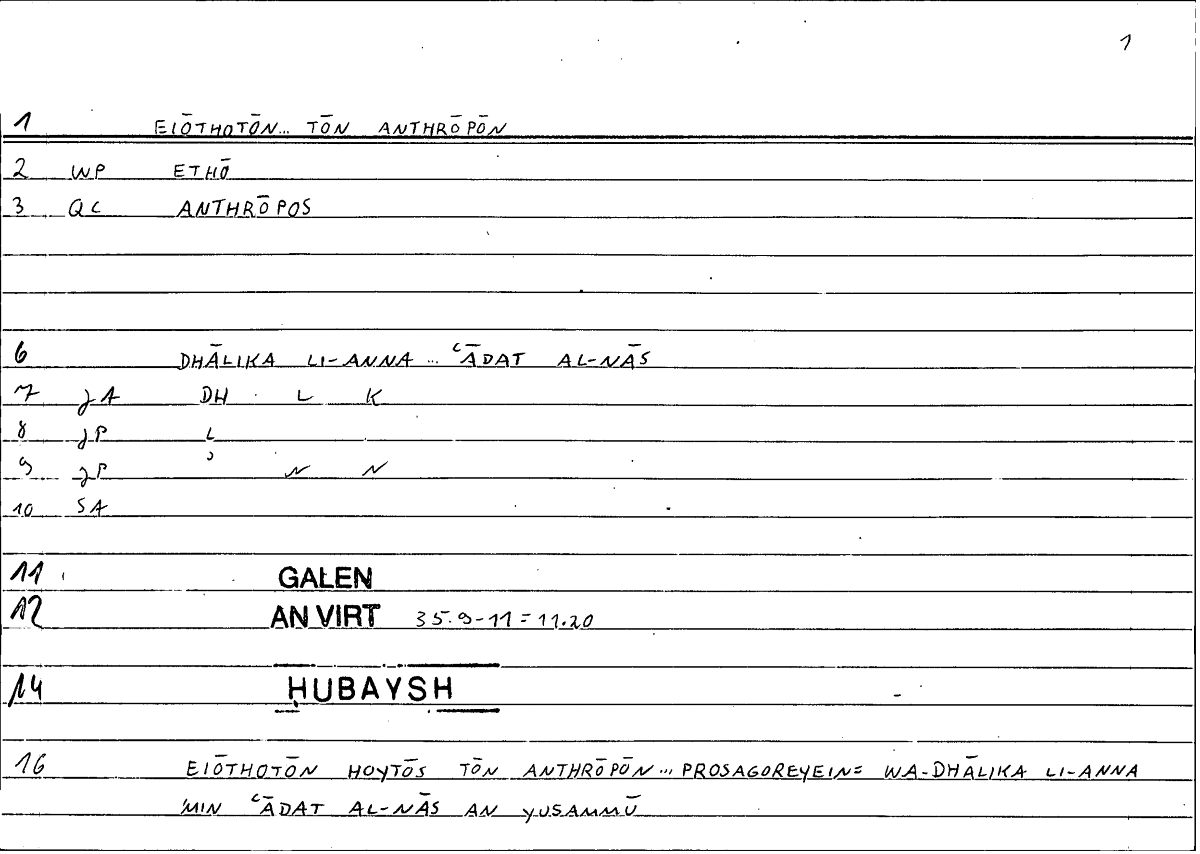 1
1 EIŌTHOTŌN... TŌN ANTHRŌPŌN
2 WP ETHŌ
3 QC ANTHRŌPOS
6 DHĀLIKA LI-ANNA... ʿĀDAT AL-NĀS
7 JA DH L K
8 JP L
9 JP ʾ N N
10 SA
11 GALEN
12 AN VIRT 35.9-11=11.20
14 ḤUBAYSH
16 EIŌTHOTŌN HOYTŌS TŌN ANTHRŌPŌN... PROSAGOREYEIN= WA-DHĀLIKA LI-ANNA
MIN ʿĀDAT AL-NĀS AN YUSAMMŪ